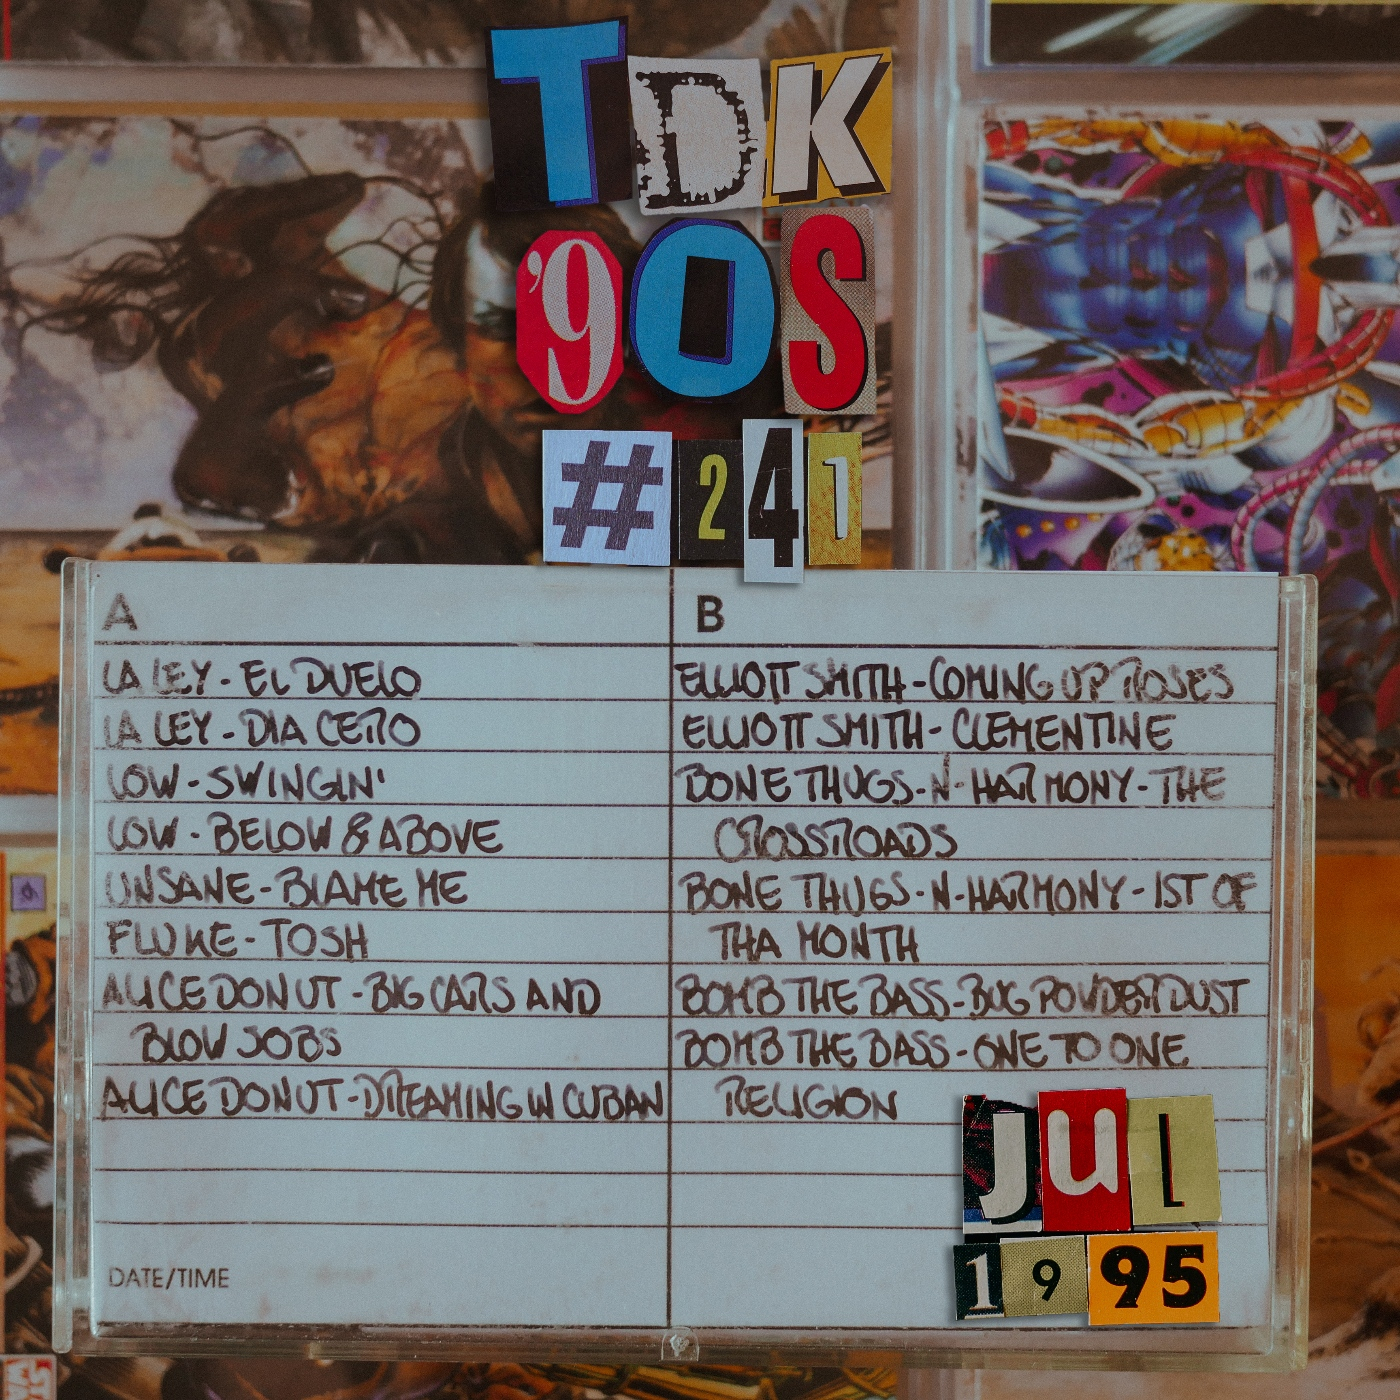 TDK
'90S
#241
A
LA LEY - EL DUELO
LA LEY - DIA CERO
LOW - SWINGIN'
LOW - BELOW & ABOVE
UNSANE - BLAME ME
FLUKE - TOSH
ALICE DONUT - BIG CARS AND
BLOW JOBS
ALICE DONUT - DREAMING IN CUBAN
DATE/TIME
B
ELLIOTT SMITH - COMING UP ROSES
ELLIOTT SMITH - CLEMENTINE
BONE THUGS-N-HARMONY - THE
CROSSROADS
BONE THUGS-N-HARMONY - 1ST OF
THA MONTH
BOMB THE BASS - BUG POWDER DUST
BOMB THE BASS - ONE TO ONE
RELIGION
JUL
1995